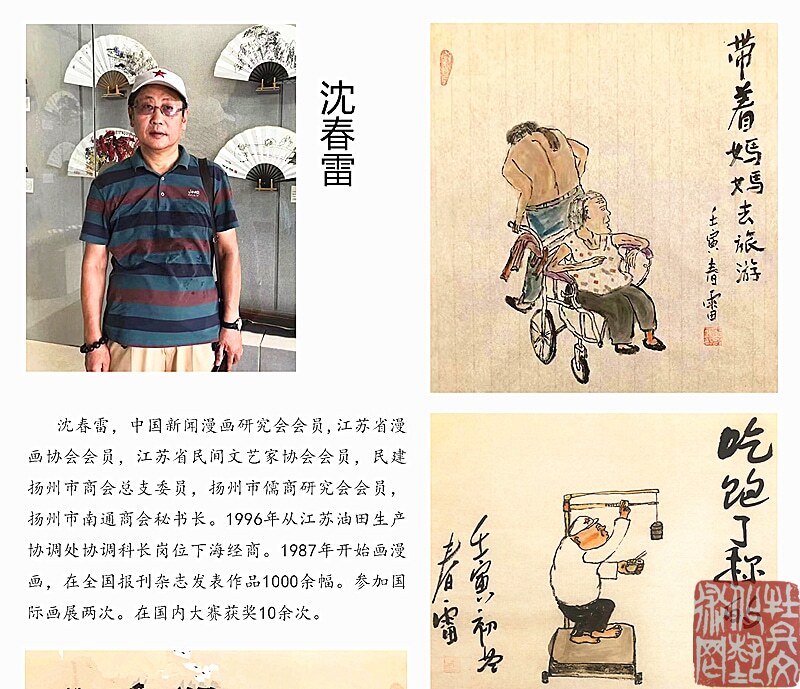 沈春雷
沈春雷，中国新闻漫画研究会会员,江苏省漫
画协会会员，江苏省民间文艺家协会会员，民建
扬州市商会总支委员，扬州市儒商研究会会员，
扬州市南通商会秘书长。1996年从江苏油田生产
协调处协调科长岗位下海经商。1987年开始画漫
画，在全国报刊杂志发表作品1000余幅。参加国
际画展两次。在国内大赛获奖10余次。
带着妈妈去旅游
壬寅春雷
吃饱了称
壬寅初冬
春雷